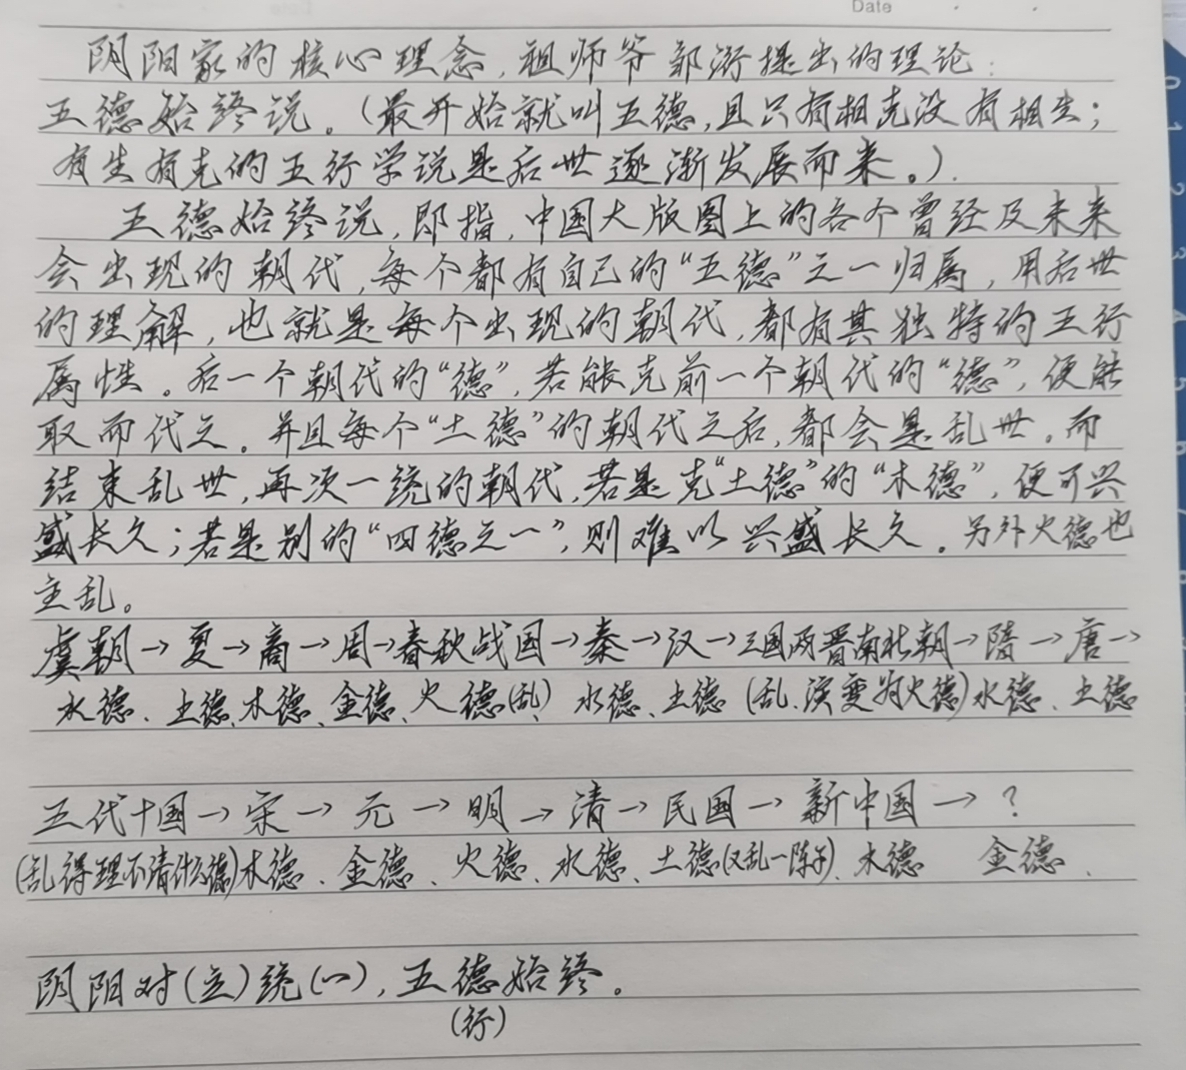 Date
阴阳家的核心理念,祖师爷邹衍提出的理论:
五德始终说。(最开始就叫五德,且只有相克没有相生;
有生有克的五行学说是后世逐渐发展而来。).
五德始终说,即指,中国大版图上的各个曾经及未来
会出现的朝代,每个都有自己的“五德”之一归属,用后世
的理解,也就是每个出现的朝代,都有其独特的五行
属性。后一个朝代的“德”,若能克前一个朝代的“德”,便能
取而代之。并且每个“土德”的朝代之后,都会是乱世。而
结束乱世,再次一统的朝代,若是克“土德”的“木德”,便可兴
盛长久;若是别的“四德之一”,则难以兴盛长久。另外火德也
主乱。
虞朝→夏→商→周→春秋战国→秦→汉→三国两晋南北朝→隋→唐→
水德、土德、木德、金德、火德(乱)水德、土德(乱、演变为火德)水德、土德
五代十国→宋→元→明→清→民国→新中国→?
(乱得理不清什么德)木德、金德、火德、水德、土德(又乱一阵子)、木德 金德、
阴阳对(立)统(一),五德始终。
(行)
0
1
2
3
4
5
6
7
8